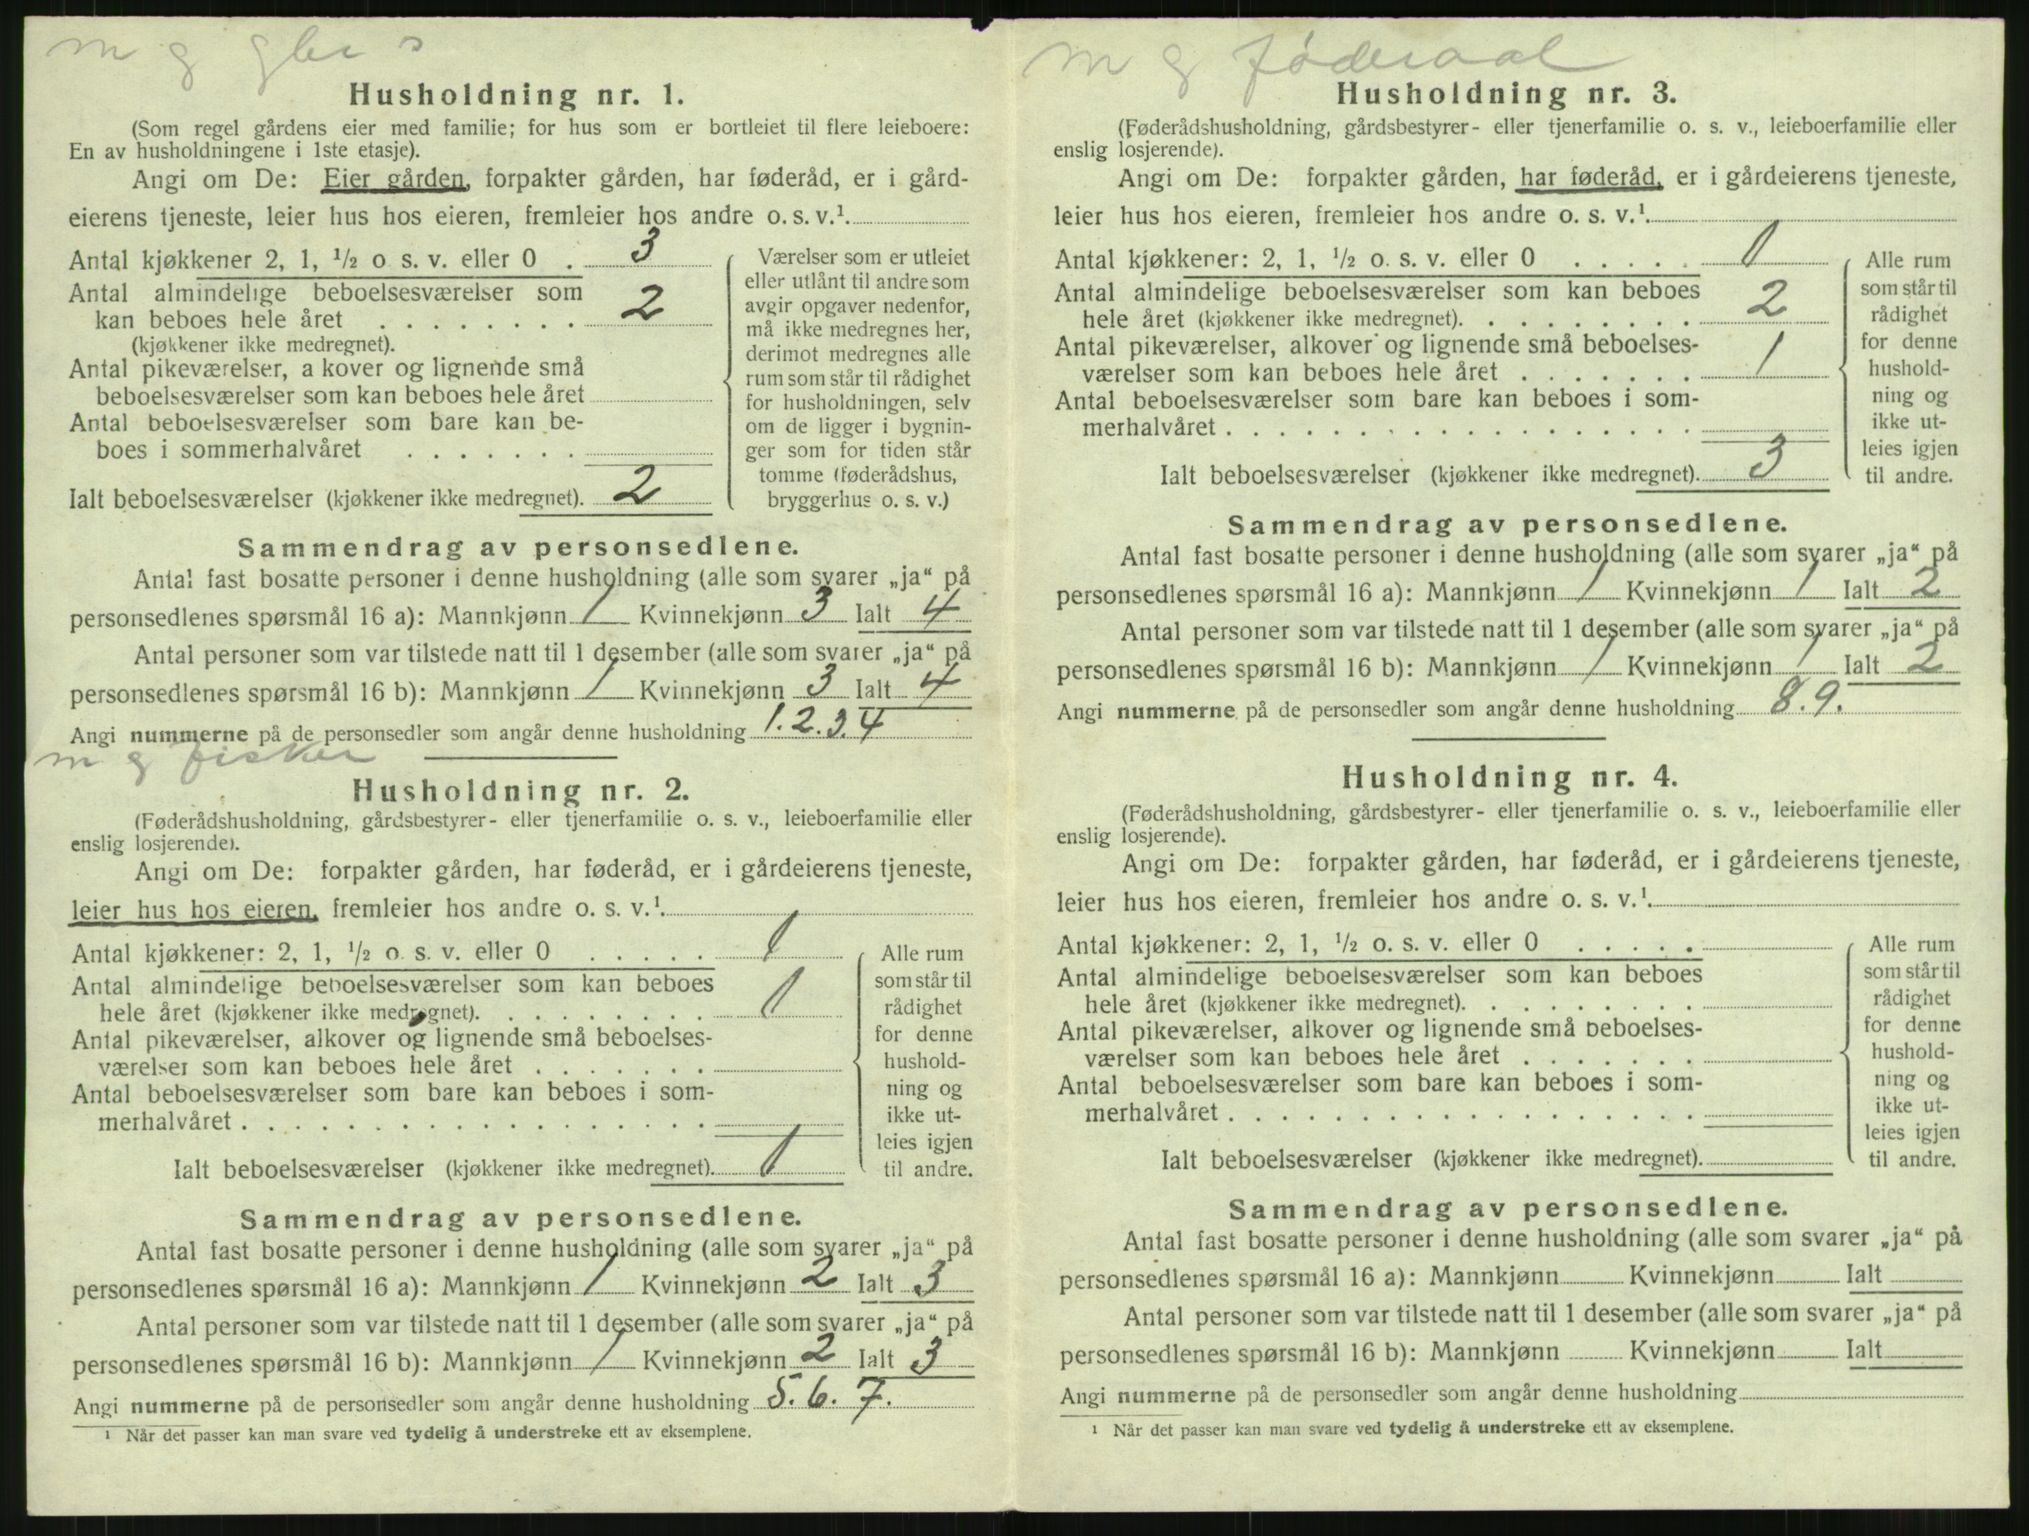 m g gbr s
Husholdning nr. 1.
(Som regel gårdens eier med familie; for hus som er bortleiet til flere leieboere:
En av husholdningene i 1ste etasje).
Angi om De: Eier gården, forpakter gården, har føderåd, er i gård-
eierens tjeneste, leier hus hos eieren, fremleier hos andre o. s. v.¹
Antal kjøkkener 2, 1, ½ o s. v. eller 0 . 3
Antal almindelige beboelsesværelser som
kan beboes hele året . . . . . . . . 2
(kjøkkener ikke medregnet).
Antal pikeværelser, a kover og lignende små
beboelsesværelser som kan beboes hele året
Antal beboelsesværelser som bare kan be-
boes i sommerhalvåret . . . . . . .
Ialt beboelsesværelser (kjøkkener ikke medregnet). 2
Værelser som er utleiet
eller utlånt til andre som
avgir opgaver nedenfor,
må ikke medregnes her,
derimot medregnes alle
rum som står til rådighet
for husholdningen, selv
om de ligger i bygnin-
ger som for tiden står
tomme (føderådshus,
bryggerhus o. s. v.)
Sammendrag av personsedlene.
Antal fast bosatte personer i denne husholdning (alle som svarer „ja“ på
personsedlenes spørsmål 16 a): Mannkjønn 1 Kvinnekjønn 3 Ialt 4
Antal personer som var tilstede natt til 1 desember (alle som svarer „ja“ på
personsedlenes spørsmål 16 b): Mannkjønn 1 Kvinnekjønn 3 Ialt 4
Angi nummerne på de personsedler som angår denne husholdning 1. 2. 3. 4
m g fisker
Husholdning nr. 2.
(Føderådshusholdning, gårdsbestyrer- eller tjenerfamilie o. s. v., leieboerfamilie eller
enslig losjerende).
Angi om De: forpakter gården, har føderåd, er i gårdeierens tjeneste,
leier hus hos eieren, fremleier hos andre o. s. v.¹
Antal kjøkkener: 2, 1, ½ o. s. v. eller 0 . . . . . 1
Antal almindelige beboelsesværelser som kan beboes
hele året (kjøkkener ikke medregnet). . . . . . . . . 1
Antal pikeværelser, alkover og lignende små beboelses-
værelser som kan beboes hele året . . . . . . .
Antal beboelsesværelser som bare kan beboes i som-
merhalvåret . . . . . . . . . . . . . . . . . .
Ialt beboelsesværelser (kjøkkener ikke medregnet). 1
Alle rum
som står til
rådighet
for denne
hushold-
ning og
ikke ut-
leies igjen
til andre.
Sammendrag av personsedlene.
Antal fast bosatte personer i denne husholdning (alle som svarer „ja“ på
personsedlenes spørsmål 16 a): Mannkjønn 1 Kvinnekjønn 2 Ialt 3
Antal personer som var tilstede natt til 1 desember (alle som svarer „ja“ på
personsedlenes spørsmål 16 b): Mannkjønn 1 Kvinnekjønn 2 Ialt 3
Angi nummerne på de personsedler som angår denne husholdning 5. 6. 7.
¹ Når det passer kan man svare ved tydelig å understreke ett av eksemplene.
m g føderaad
Husholdning nr. 3.
(Føderådshusholdning, gårdsbestyrer- eller tjenerfamilie o. s. v., leieboerfamilie eller
enslig losjerende).
Angi om De: forpakter gården, har føderåd, er i gårdeierens tjeneste,
leier hus hos eieren, fremleier hos andre o. s. v.¹
Antal kjøkkener: 2, 1, ½ o. s. v. eller 0 . . . . . 1
Antal almindelige beboelsesværelser som kan beboes
hele året (kjøkkener ikke medregnet). . . . . . . . . 2
Antal pikeværelser, alkover og lignende små beboelses-
værelser som kan beboes hele året . . . . . . . 1
Antal beboelsesværelser som bare kan beboes i som-
merhalvåret . . . . . . . . . . . . . . . . . .
Ialt beboelsesværelser (kjøkkener ikke medregnet). 3
Alle rum
som står til
rådighet
for denne
hushold-
ning og
ikke ut-
leies igjen
til andre.
Sammendrag av personsedlene.
Antal fast bosatte personer i denne husholdning (alle som svarer „ja“ på
personsedlenes spørsmål 16 a): Mannkjønn 1 Kvinnekjønn 1 Ialt 2
Antal personer som var tilstede natt til 1 desember (alle som svarer „ja“ på
personsedlenes spørsmål 16 b): Mannkjønn 1 Kvinnekjønn 1 Ialt 2
Angi nummerne på de personsedler som angår denne husholdning 8. 9.
Husholdning nr. 4.
(Føderådshusholdning, gårdsbestyrer- eller tjenerfamilie o. s. v., leieboerfamilie eller
enslig losjerende).
Angi om De: forpakter gården, har føderåd, er i gårdeierens tjeneste,
leier hus hos eieren, fremleier hos andre o. s. v.¹
Antal kjøkkener: 2, 1, ½ o. s. v. eller 0 . . . . .
Antal almindelige beboelsesværelser som kan beboes
hele året (kjøkkener ikke medregnet). . . . . . . . .
Antal pikeværelser, alkover og lignende små beboelses-
værelser som kan beboes hele året . . . . . . .
Antal beboelsesværelser som bare kan beboes i som-
merhalvåret . . . . . . . . . . . . . . . . . .
Ialt beboelsesværelser (kjøkkener ikke medregnet).
Alle rum
som står til
rådighet
for denne
hushold-
ning og
ikke ut-
leies igjen
til andre.
Sammendrag av personsedlene.
Antal fast bosatte personer i denne husholdning (alle som svarer „ja“ på
personsedlenes spørsmål 16 a): Mannkjønn Kvinnekjønn Ialt
Antal personer som var tilstede natt til 1 desember (alle som svarer „ja“ på
personsedlenes spørsmål 16 b): Mannkjønn Kvinnekjønn Ialt
Angi nummerne på de personsedler som angår denne husholdning
¹ Når det passer kan man svare ved tydelig å understreke ett av eksemplene.